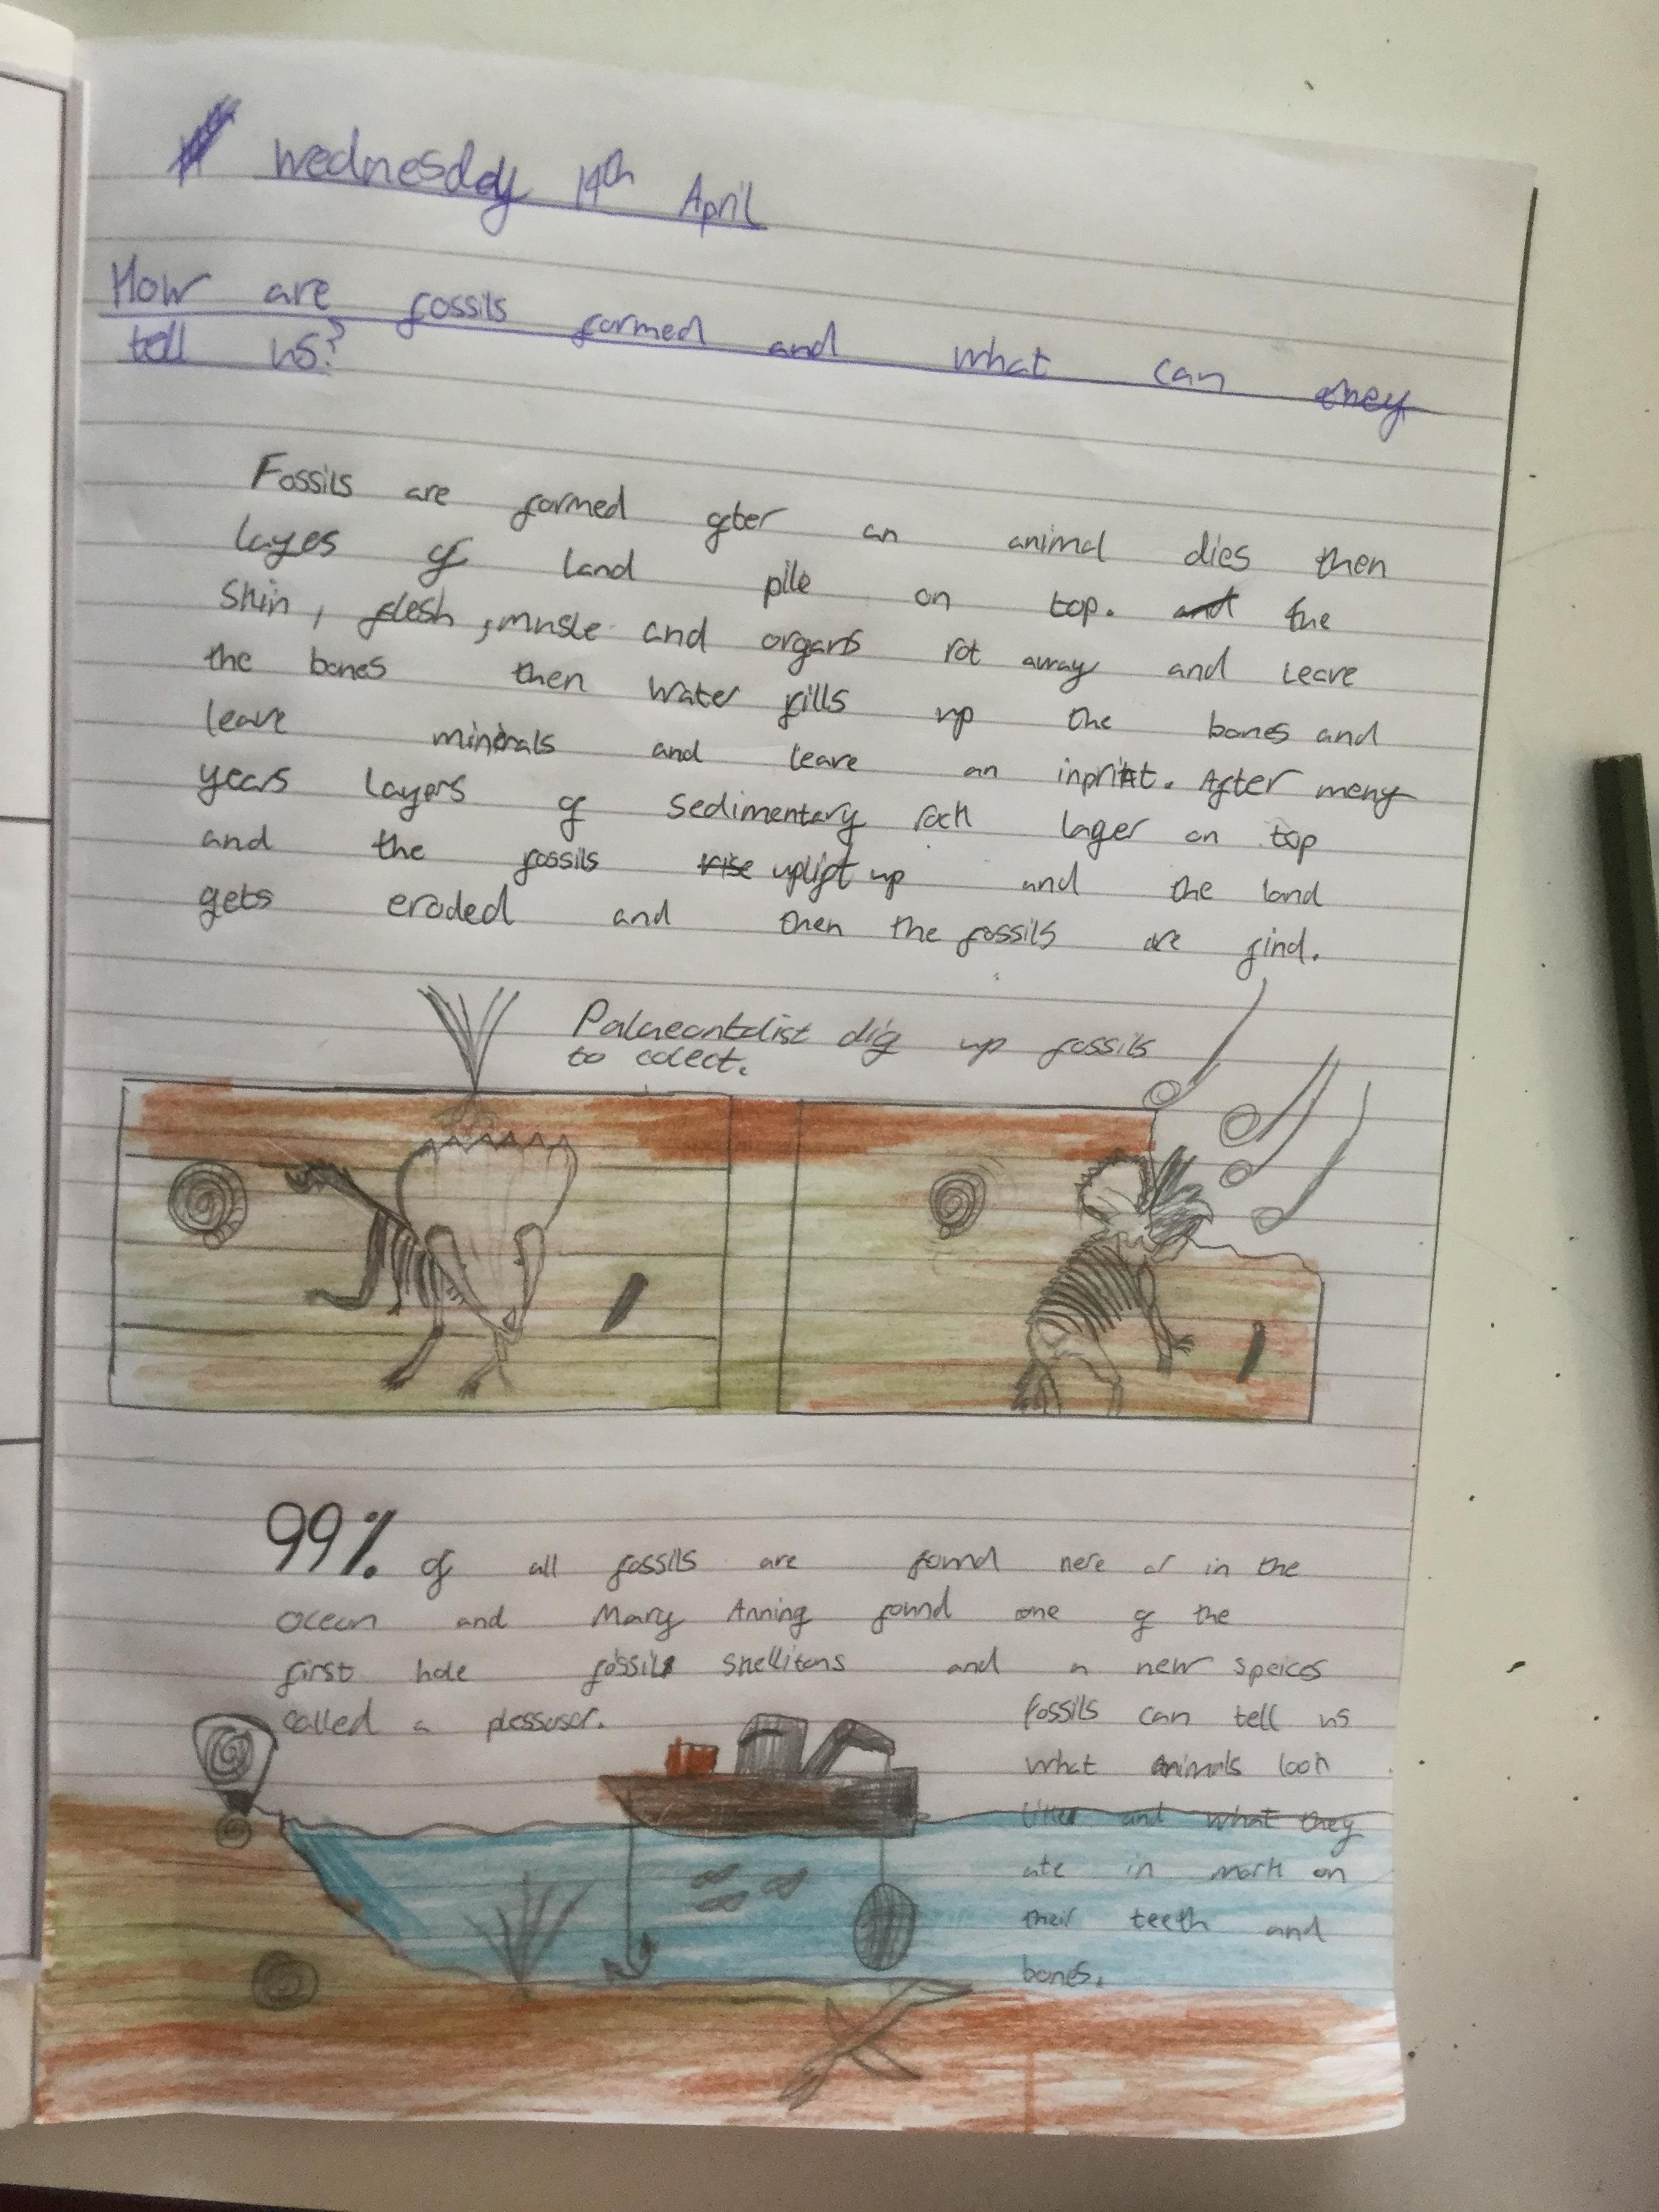 Wednesday 14th April
How are fossils formed and what can they
tell us?
Fossils are formed after an animal dies then
layes of land pile on top. and the
skin, flesh, musle and organs rot away and leave
the bones then water fills up the bones and
leave minerals and leave an inprint. After meny
years layers of sedimentary rock layer on top
and the fossils rise uplift up and the land
gets eroded and then the fossils are find.
Palaeontolist dig up fossils
to colect.
99% of all fossils are found here or in the
ocean and Mary Anning found one of the
first hole fossils skelitons and a new speices
called a plessosor.
fossils can tell us
what animals look
and what they
ate in mark on
their teeth and
bones.